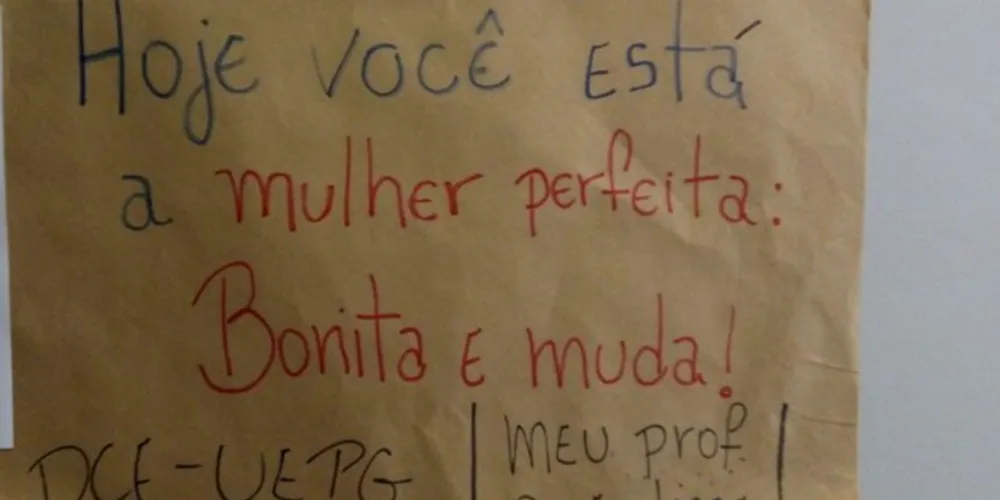 Hoje você está
a mulher perfeita:
Bonita e muda!
DCE-UEPG | MEU prof. |